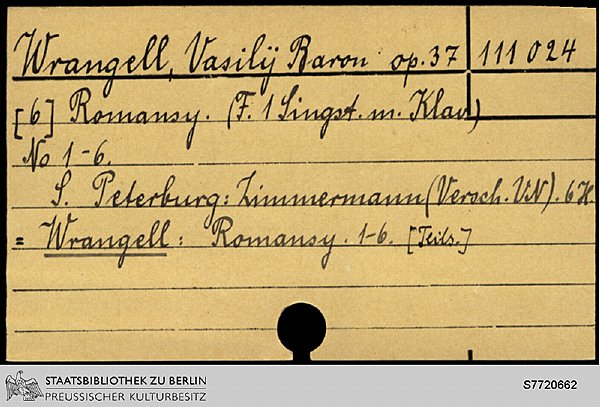 Wrangell, Vasilij Baron op. 37 111 024
[6] Romansy. (F. 1 Singst. m. Klav.)
No 1-6.
S. Peterburg: Zimmermann (Versch. VN). 6 H.
= Wrangell: Romansy. 1-6. [Teils.]
STAATSBIBLIOTHEK ZU BERLIN
PREUSSISCHER KULTURBESITZ
S7720662